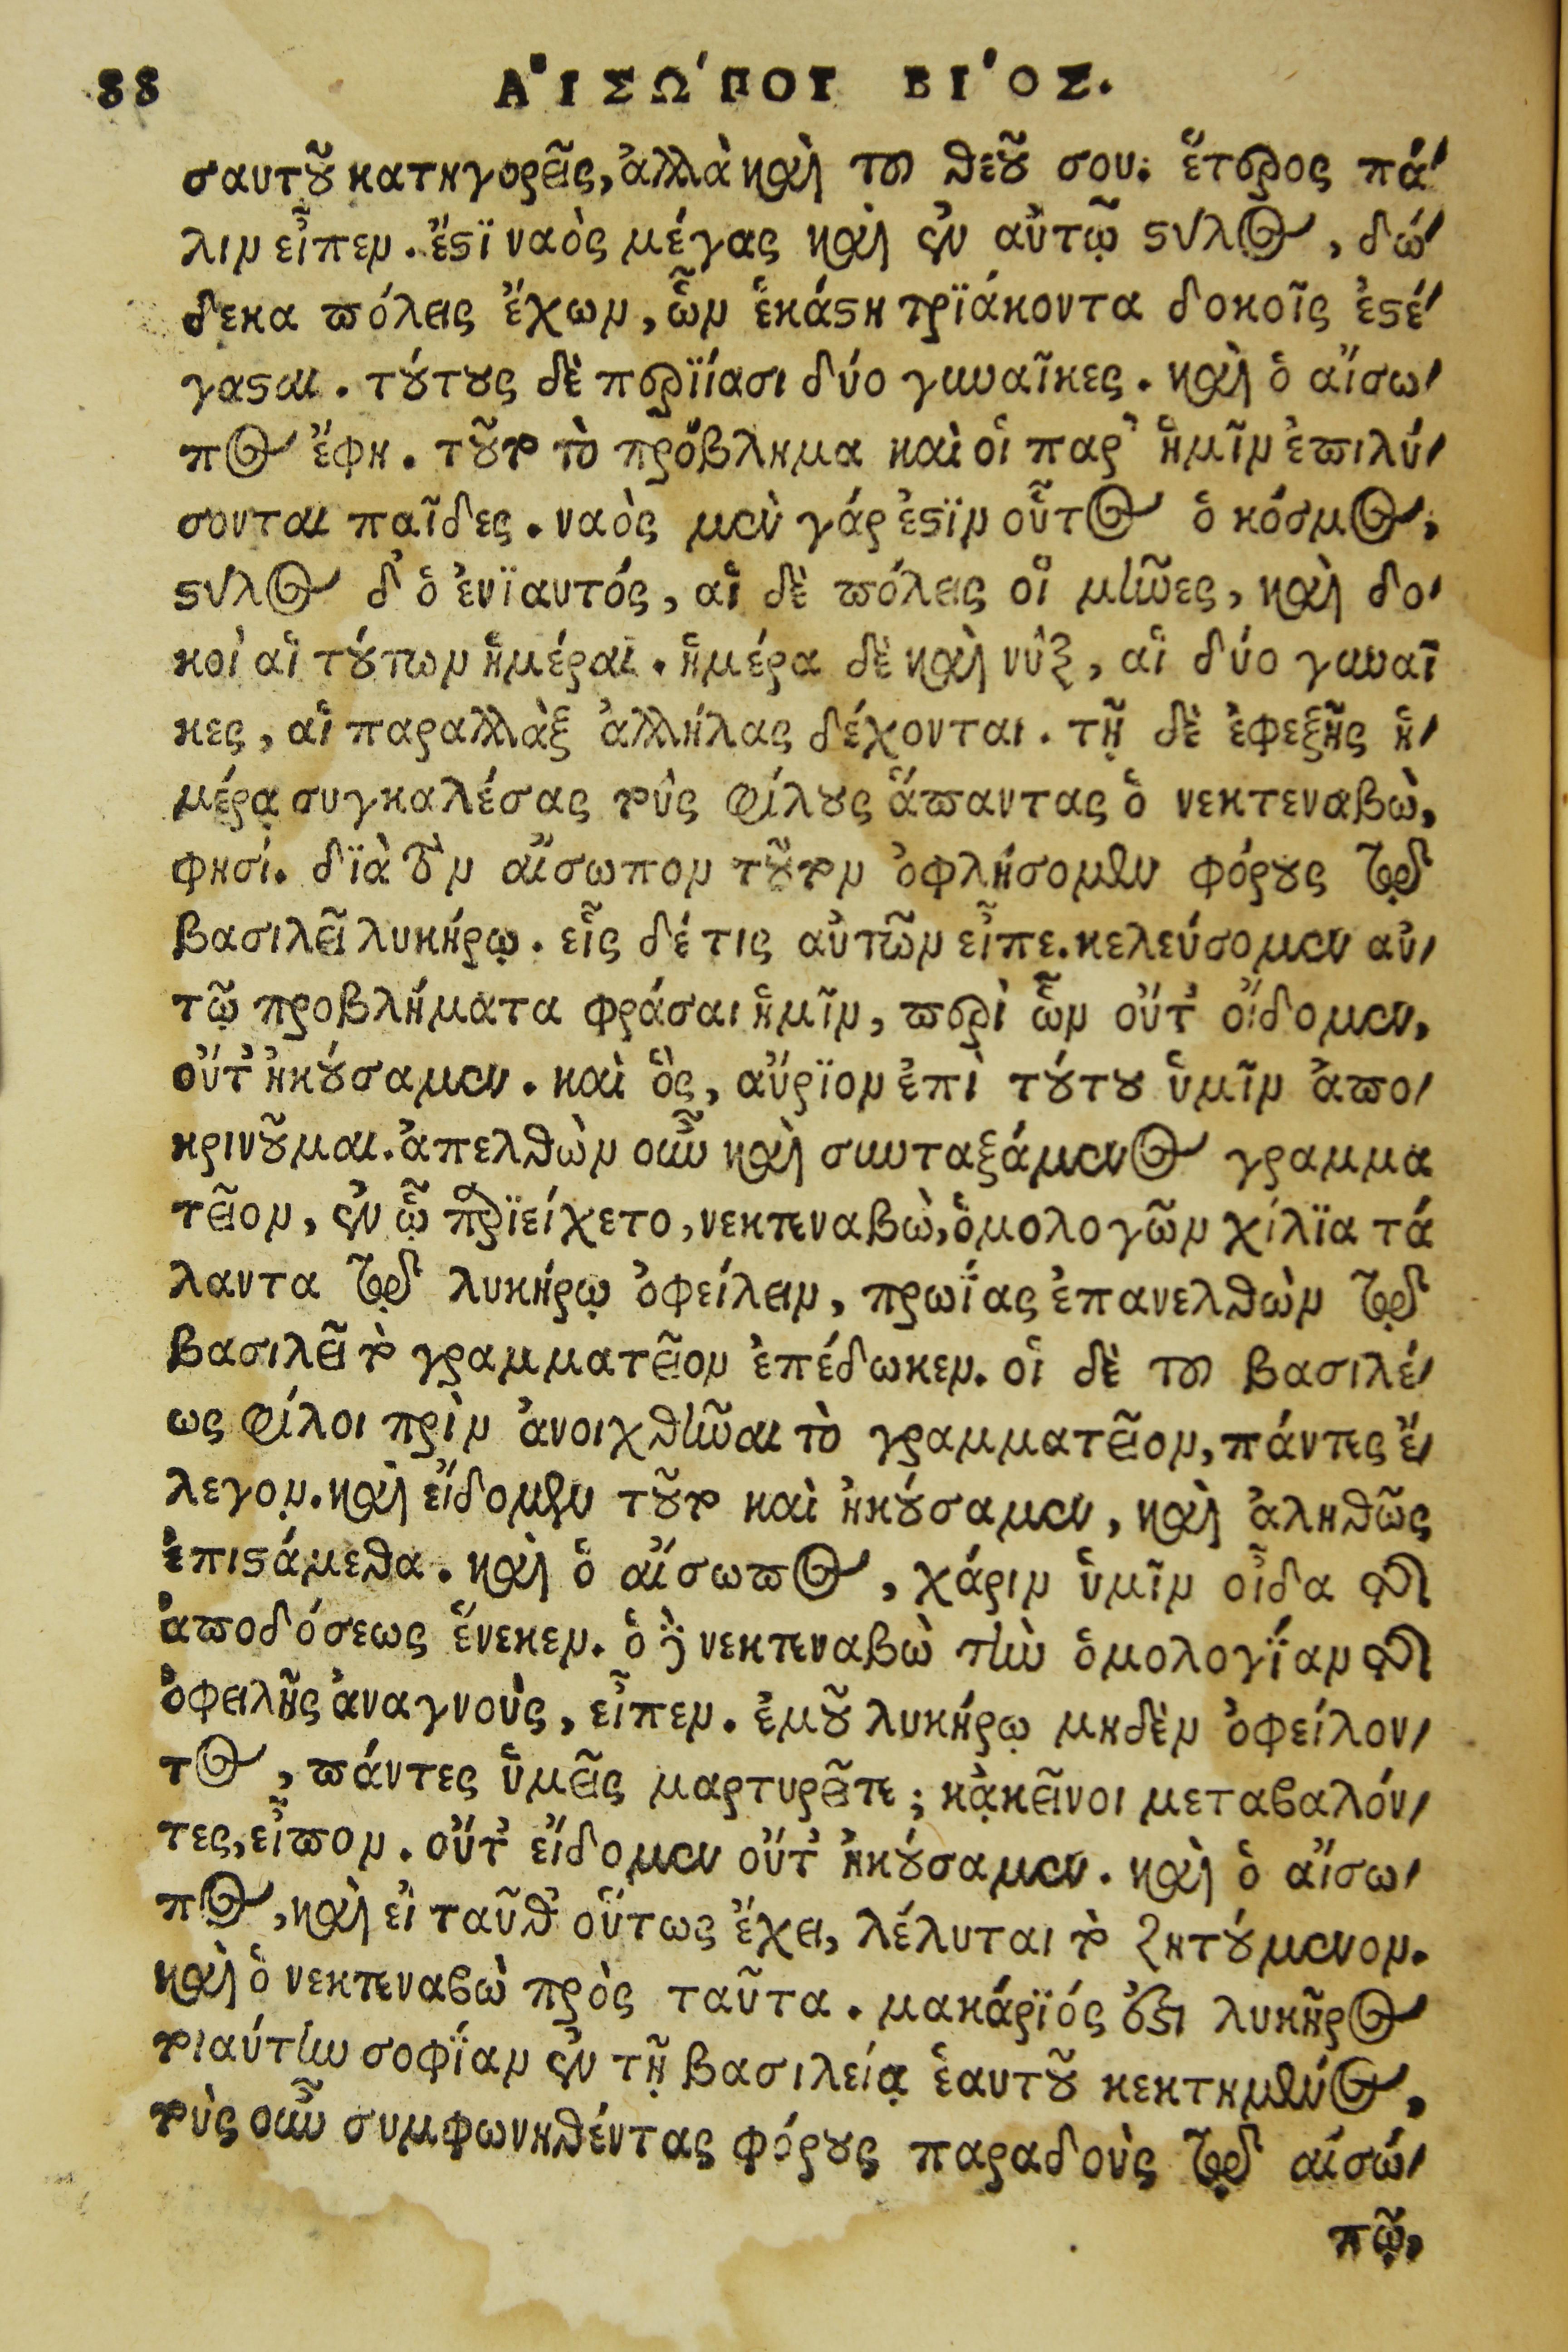 88 ΑἸΣΩ´ΠΟΥ ΒΙ´ΟΣ.
σαυτοῦ κατηγορεῖς, ἀλλὰ καὶ τοῦ θεοῦ σου. ἕτερος πά-
λιν εἶπεν. ἔστι ναὸς μέγας καὶ ἐν αὐτῷ στύλος, δώ-
δεκα πόλεις ἔχων, ὧν ἑκάστη τριάκοντα δοκοῖς ἐστέ-
γασται. τούτους δὲ περιίασι δύο γυναῖκες. καὶ ὁ αἴσω-
πος ἔφη. τοῦτο τὸ πρόβλημα καὶ οἱ παρ' ἡμῖν ἐπιλύ-
σονται παῖδες. ναὸς μὲν γάρ ἐστιν οὗτος ὁ κόσμος,
στύλος δ' ὁ ἐνιαυτός, αἱ δὲ πόλεις οἱ μῆνες, καὶ δο-
κοὶ αἱ τούτων ἡμέραι. ἡμέρα δὲ καὶ νὺξ, αἱ δύο γυναῖ
κες, αἱ παραλλὰξ ἀλλήλας δέχονται. τῇ δὲ ἐφεξῆς ἡ-
μέρᾳ συγκαλέσας τοὺς φίλους ἅπαντας ὁ νεκτεναβὼ,
φησί. διὰ τὸν αἴσωπον τοῦτον ὀφλήσομεν φόρους τῷ
βασιλεῖ λυκήρῳ. εἷς δέ τις αὐτῶν εἶπε. κελεύσομεν αὐ-
τῷ προβλήματα φράσαι ἡμῖν, περὶ ὧν οὔτ' οἴδομεν,
οὔτ' ἠκούσαμεν. καὶ ὃς, αὔριον ἐπὶ τούτου ὑμῖν ἀπο-
κρινοῦμαι. ἀπελθὼν οὖν καὶ συνταξάμενος γραμμα
τεῖον, ἐν ᾧ περιείχετο, νεκτεναβὼ, ὁμολογῶν χίλια τά
λαντα τῷ λυκήρῳ ὀφείλειν, πρωΐας ἐπανελθὼν τῷ
βασιλεῖ τὸ γραμματεῖον ἐπέδωκεν. οἱ δὲ τοῦ βασιλέ-
ως φίλοι πρὶν ἀνοιχθῆναι τὸ γραμματεῖον, πάντες ἔ-
λεγον. καὶ εἴδομεν τοῦτο καὶ ἠκούσαμεν, καὶ ἀληθῶς
ἐπιστάμεθα. καὶ ὁ αἴσωπος, χάριν ὑμῖν οἶδα τῆς
ἀποδόσεως ἕνεκεν. ὁ δὲ νεκτεναβὼ τὴν ὁμολογίαν τῆς
ὀφειλῆς ἀναγνοὺς, εἶπεν. ἐμοῦ λυκήρῳ μηδὲν ὀφείλον-
τος, πάντες ὑμεῖς μαρτυρεῖτε; κἀκεῖνοι μεταβαλόν-
τες, εἶπον. οὔτ' εἴδομεν οὔτ' ἠκούσαμεν. καὶ ὁ αἴσω-
πος, καὶ εἰ ταῦθ' οὕτως ἔχει, λέλυται τὸ ζητούμενον.
καὶ ὁ νεκτεναβὼ πρὸς ταῦτα. μακάριός ἐστι λυκῆρος
τοιαύτην σοφίαν ἐν τῇ βασιλείᾳ ἑαυτοῦ κεκτημένος,
τοὺς οὖν συμφωνηθέντας φόρους παραδοὺς τῷ αἰσώ-
πῳ,